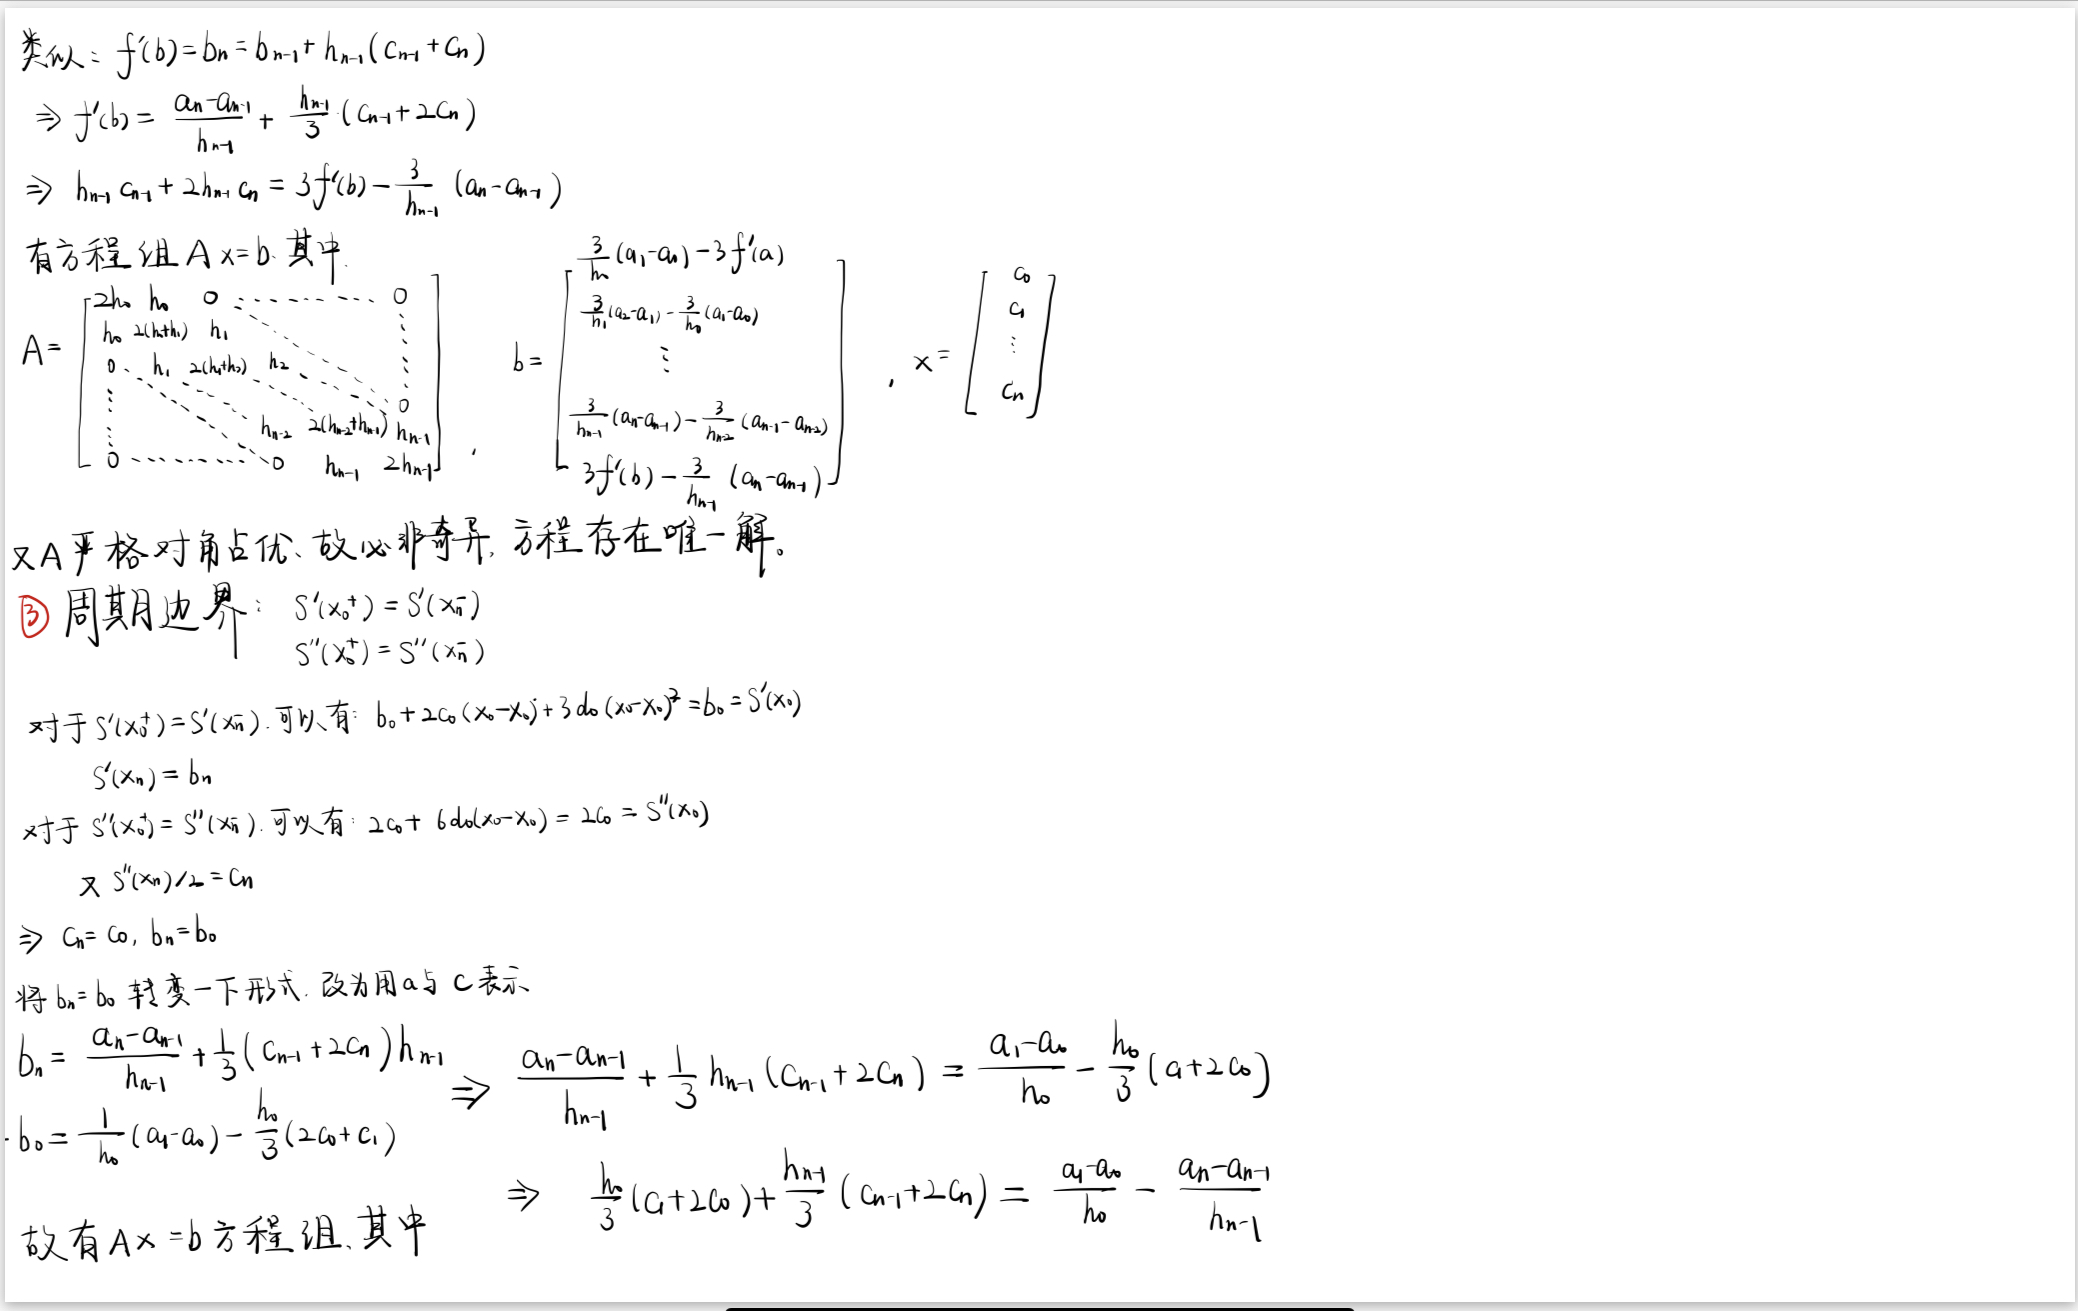 类似：f'(b)=bₙ=bₙ₋₁+hₙ₋₁(cₙ₋₁+cₙ)
⇒ f'(b)= (aₙ-aₙ₋₁)/hₙ₋₁ + hₙ₋₁/3 (cₙ₋₁+2cₙ)
⇒ hₙ₋₁cₙ₋₁+2hₙ₋₁cₙ = 3f'(b) - 3/hₙ₋₁ (aₙ-aₙ₋₁)
有方程组Ax=b.其中.
A= [
2h₀ h₀ 0 ⋯ 0
h₀ 2(h₀+h₁) h₁
0 h₁ 2(h₁+h₂) h₂
⋮ ⋱ 0
hₙ₋₂ 2(hₙ₋₂+hₙ₋₁) hₙ₋₁
0 ⋯ 0 hₙ₋₁ 2hₙ₋₁
] ,
b= [
3/h₀ (a₁-a₀) - 3f'(a)
3/h₁ (a₂-a₁) - 3/h₀ (a₁-a₀)
⋮
3/hₙ₋₁ (aₙ-aₙ₋₁) - 3/hₙ₋₂ (aₙ₋₁-aₙ₋₂)
3f'(b) - 3/hₙ₋₁ (aₙ-aₙ₋₁)
] ,
x= [
c₀
c₁
⋮
cₙ
]
又A严格对角占优、故必非奇异,方程存在唯一解。
③ 周期边界： S'(x₀⁺)=S'(xₙ⁻)
S''(x₀⁺)=S''(xₙ⁻)
对于S'(x₀⁺)=S'(xₙ⁻).可以有: b₀+2c₀(x₀-x₀)+3d₀(x₀-x₀)²=b₀=S'(x₀)
S'(xₙ)=bₙ
对于S''(x₀⁺)=S''(xₙ⁻).可以有: 2c₀+6d₀(x₀-x₀)=2c₀=S''(x₀)
又 S''(xₙ)/2=cₙ
⇒ cₙ=c₀, bₙ=b₀
将bₙ=b₀转变一下形式.改为用a与c表示
bₙ= (aₙ-aₙ₋₁)/hₙ₋₁ + 1/3 (cₙ₋₁+2cₙ)hₙ₋₁
b₀= 1/h₀ (a₁-a₀) - h₀/3 (2c₀+c₁)
⇒ (aₙ-aₙ₋₁)/hₙ₋₁ + 1/3 hₙ₋₁(cₙ₋₁+2cₙ) = (a₁-a₀)/h₀ - h₀/3 (c₁+2c₀)
⇒ h₀/3 (c₁+2c₀) + hₙ₋₁/3 (cₙ₋₁+2cₙ) = (a₁-a₀)/h₀ - (aₙ-aₙ₋₁)/hₙ₋₁
故有Ax=b方程组、其中